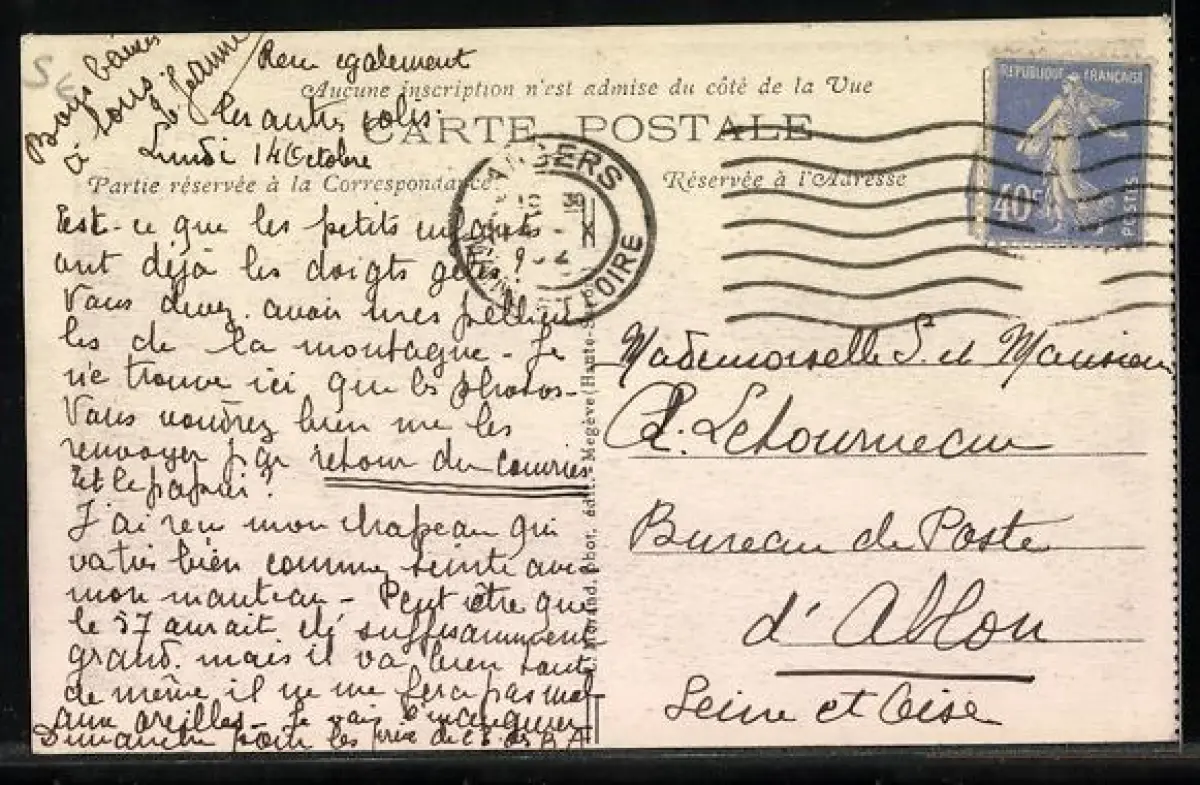 Bons baisers
à tous
Jeanne
Reçu également
les autres colis.
Aucune inscription n'est admise du côté de la Vue
CARTE POSTALE
Lundi 14 Octobre
Partie réservée à la Correspondance.
Réservée à l'Adresse
RÉPUBLIQUE FRANÇAISE
40c
POSTES
ANGERS
LOIRE
Est-ce que les petits enfants
ont déjà les doigts gelés?
Vous devez avoir mes pellicu
les de la montagne - Je
ne trouve ici que les photos-
Vous voudrez bien me les
renvoyer par retour du courrier
Et le papani?
J'ai reçu mon chapeau qui
va très bien comme teinte avec
mon manteau - Peut être que
le 57 aurait été suffisamment
grand. mais il va bien tout
de même il ne me fera pas mal
aux oreilles - Je vais
Dimanche pour les prix de
Morand, phot. édit. - Megève (Haute-Savoie)
Mademoiselle S. et Monsieur
Letourneau
Bureau de Poste
d'Ablon
Seine et Oise